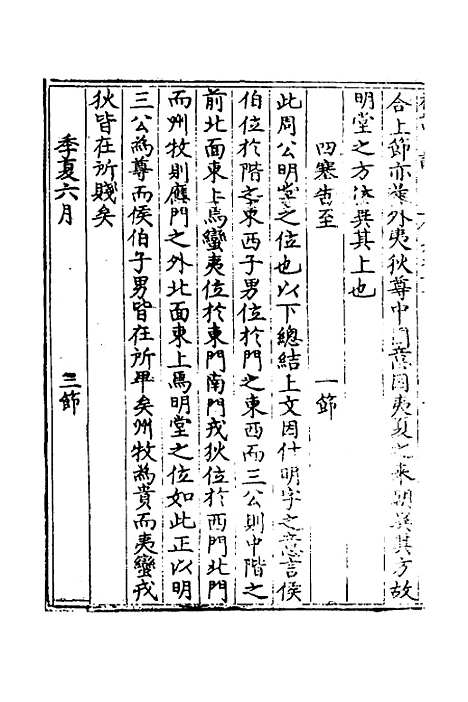 合上節亦是外夷狄尊中意因夷夏之來朝異其方故
明堂之方法異其上也
四塞告至　一節
此周公明堂之位也以下總結上文因什明字之意言侯
伯位於階之東西子男位於門之東西而三公則中階之
前北面東上焉蠻夷位於東門南門戎狄位於西門北門
而州牧則應門之外北面東上焉明堂之位如此正以明
三公為尊而侯伯子男皆在所卑矣州牧為貴而夷蠻戎
狄皆在所賤矣
季夏六月　三節